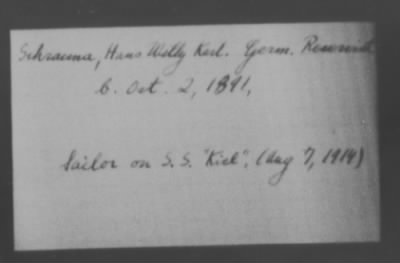 Schrauma, Hans Willy Karl. Germ. Reservist
b. Oct. 2, 1891,
Sailor on S.S. "Kiel", (Aug 7, 1914)